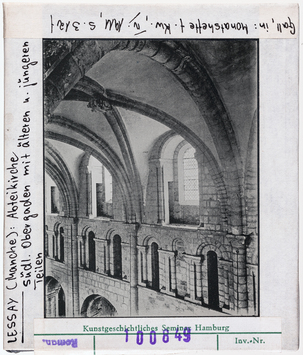 Gall, in: Monatshefte f. Kw, IV, 1911, S. 312 f
LESSAY (Manche): Abteikirche
südl. Obergaden mit älteren u. jüngeren
Teilen
Kunstgeschichtliches Seminar Hamburg
Roman. 100849 Inv.-Nr.